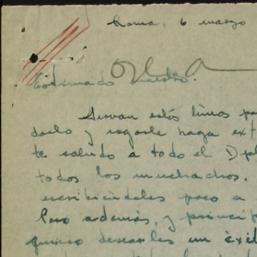 Roma, 6 marzo
Estimado Maestro:
Sirvan estas líneas pa
darlo y rogarle haga ext
te saludo a todo el Dpl
todos los muchachos.
escribiéndoles poco a
Pero además, y princip
quiero desearles un éxi